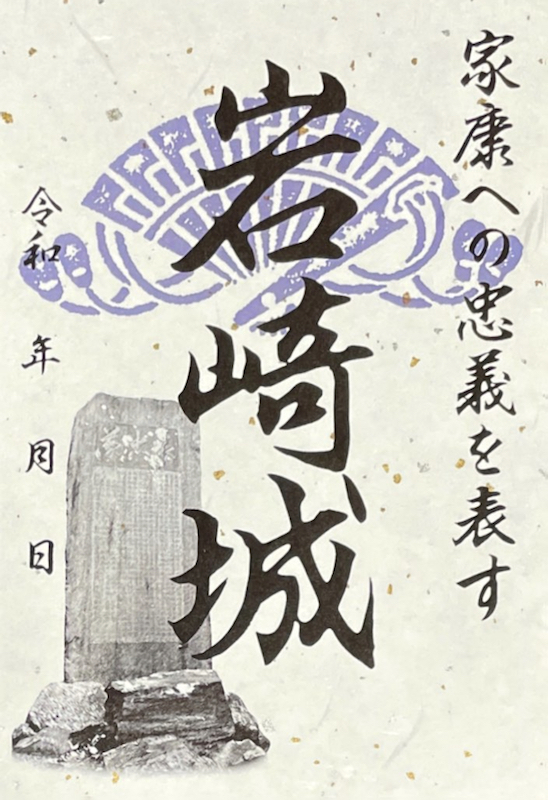 家康への忠義を表す
岩崎城
令和 年 月 日